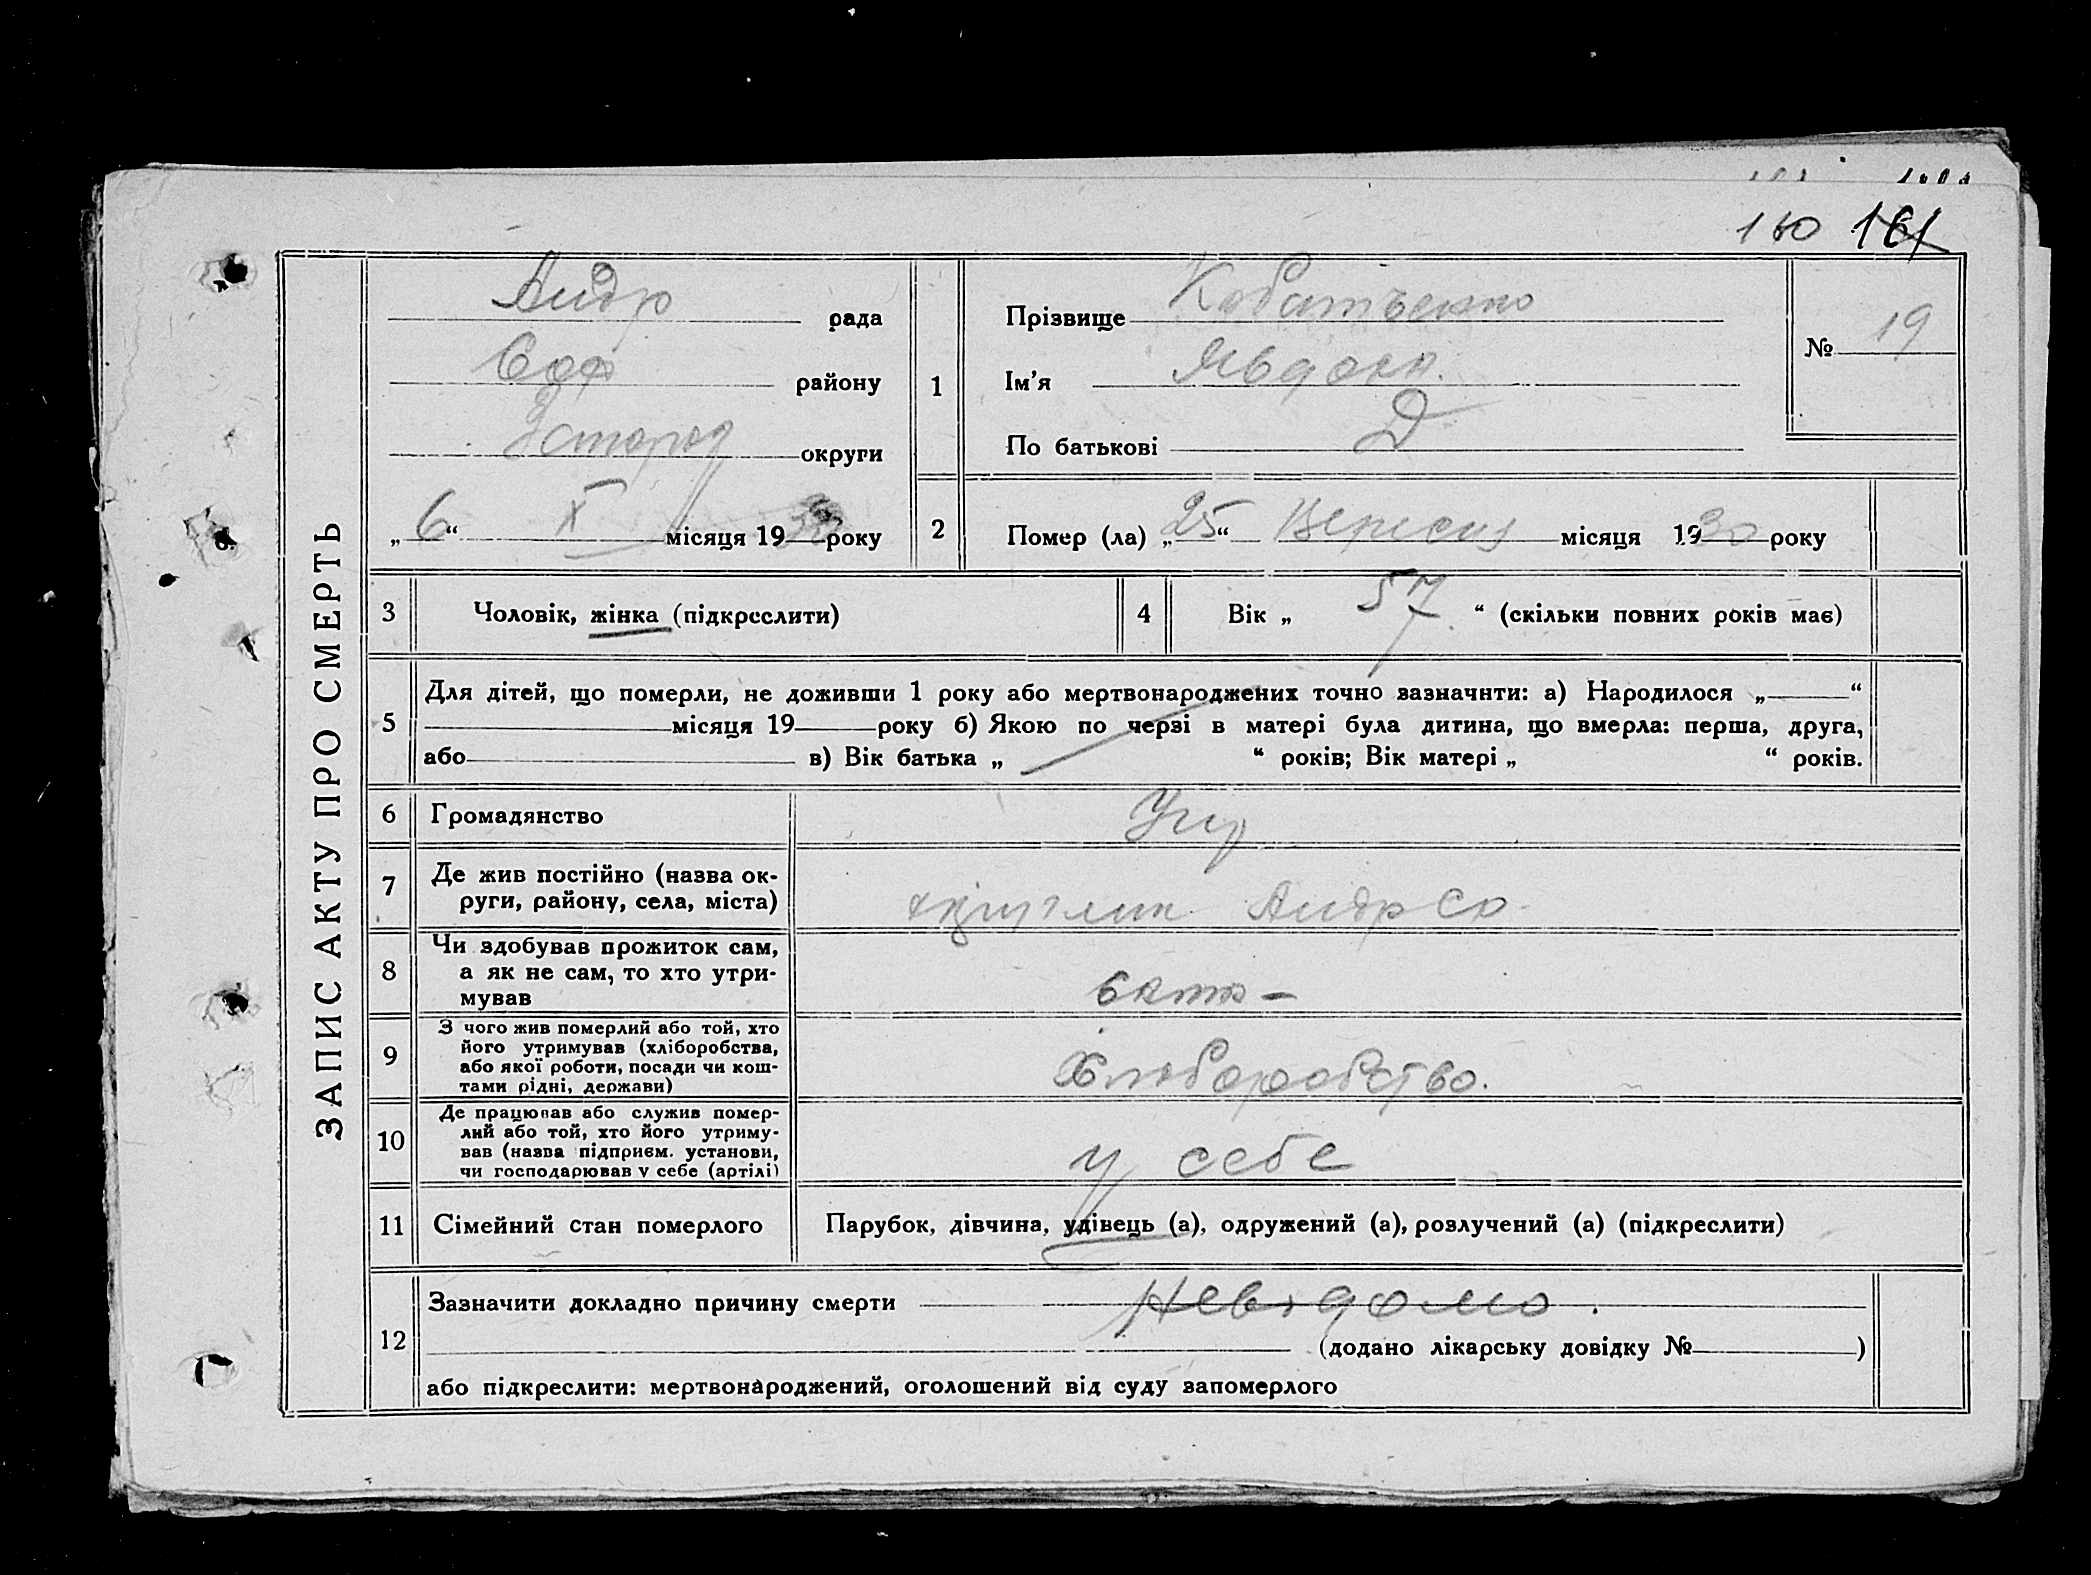 160 161
ЗАПИС АКТУ ПРО СМЕРТЬ
Андр рада
району
округи
„6“ X місяця 1930 року
1
Прізвище
Ім’я Явдокн.
По батькові Д
№ 19
2
Помер (ла) „25“ Вересня місяця 1930 року
3
Чоловік, жінка (підкреслити)
4
Вік „ 57 “ (скільки повних років має)
5
Для дітей, що померли, не доживши 1 року або мертвонароджених точно зазначити: а) Народилося „ “
місяця 19 року б) Якою по черзі в матері була дитина, що вмерла: перша, друга,
або в) Вік батька „ “ років; Вік матері „ “ років.
6
Громадянство Укр
7
Де жив постійно (назва ок-
руги, району, села, міста)
8
Чи здобував прожиток сам,
а як не сам, то хто утри-
мував
9
З чого жив померлий або той, хто
його утримував (хліборобства,
або якої роботи, посади чи кош-
тами рідні, держави)
Хлюборобство.
10
Де працював або служив помер-
лий або той, хто його утриму-
вав (назва підприєм. установи,
чи господарював у себе (артілі)
у себе
11
Сімейний стан померлого
Парубок, дівчина, удівець (а), одружений (а), розлучений (а) (підкреслити)
12
Зазначити докладно причину смерти Невідомо.
(додано лікарську довідку № )
або підкреслити: мертвонароджений, оголошений від суду запомерлого